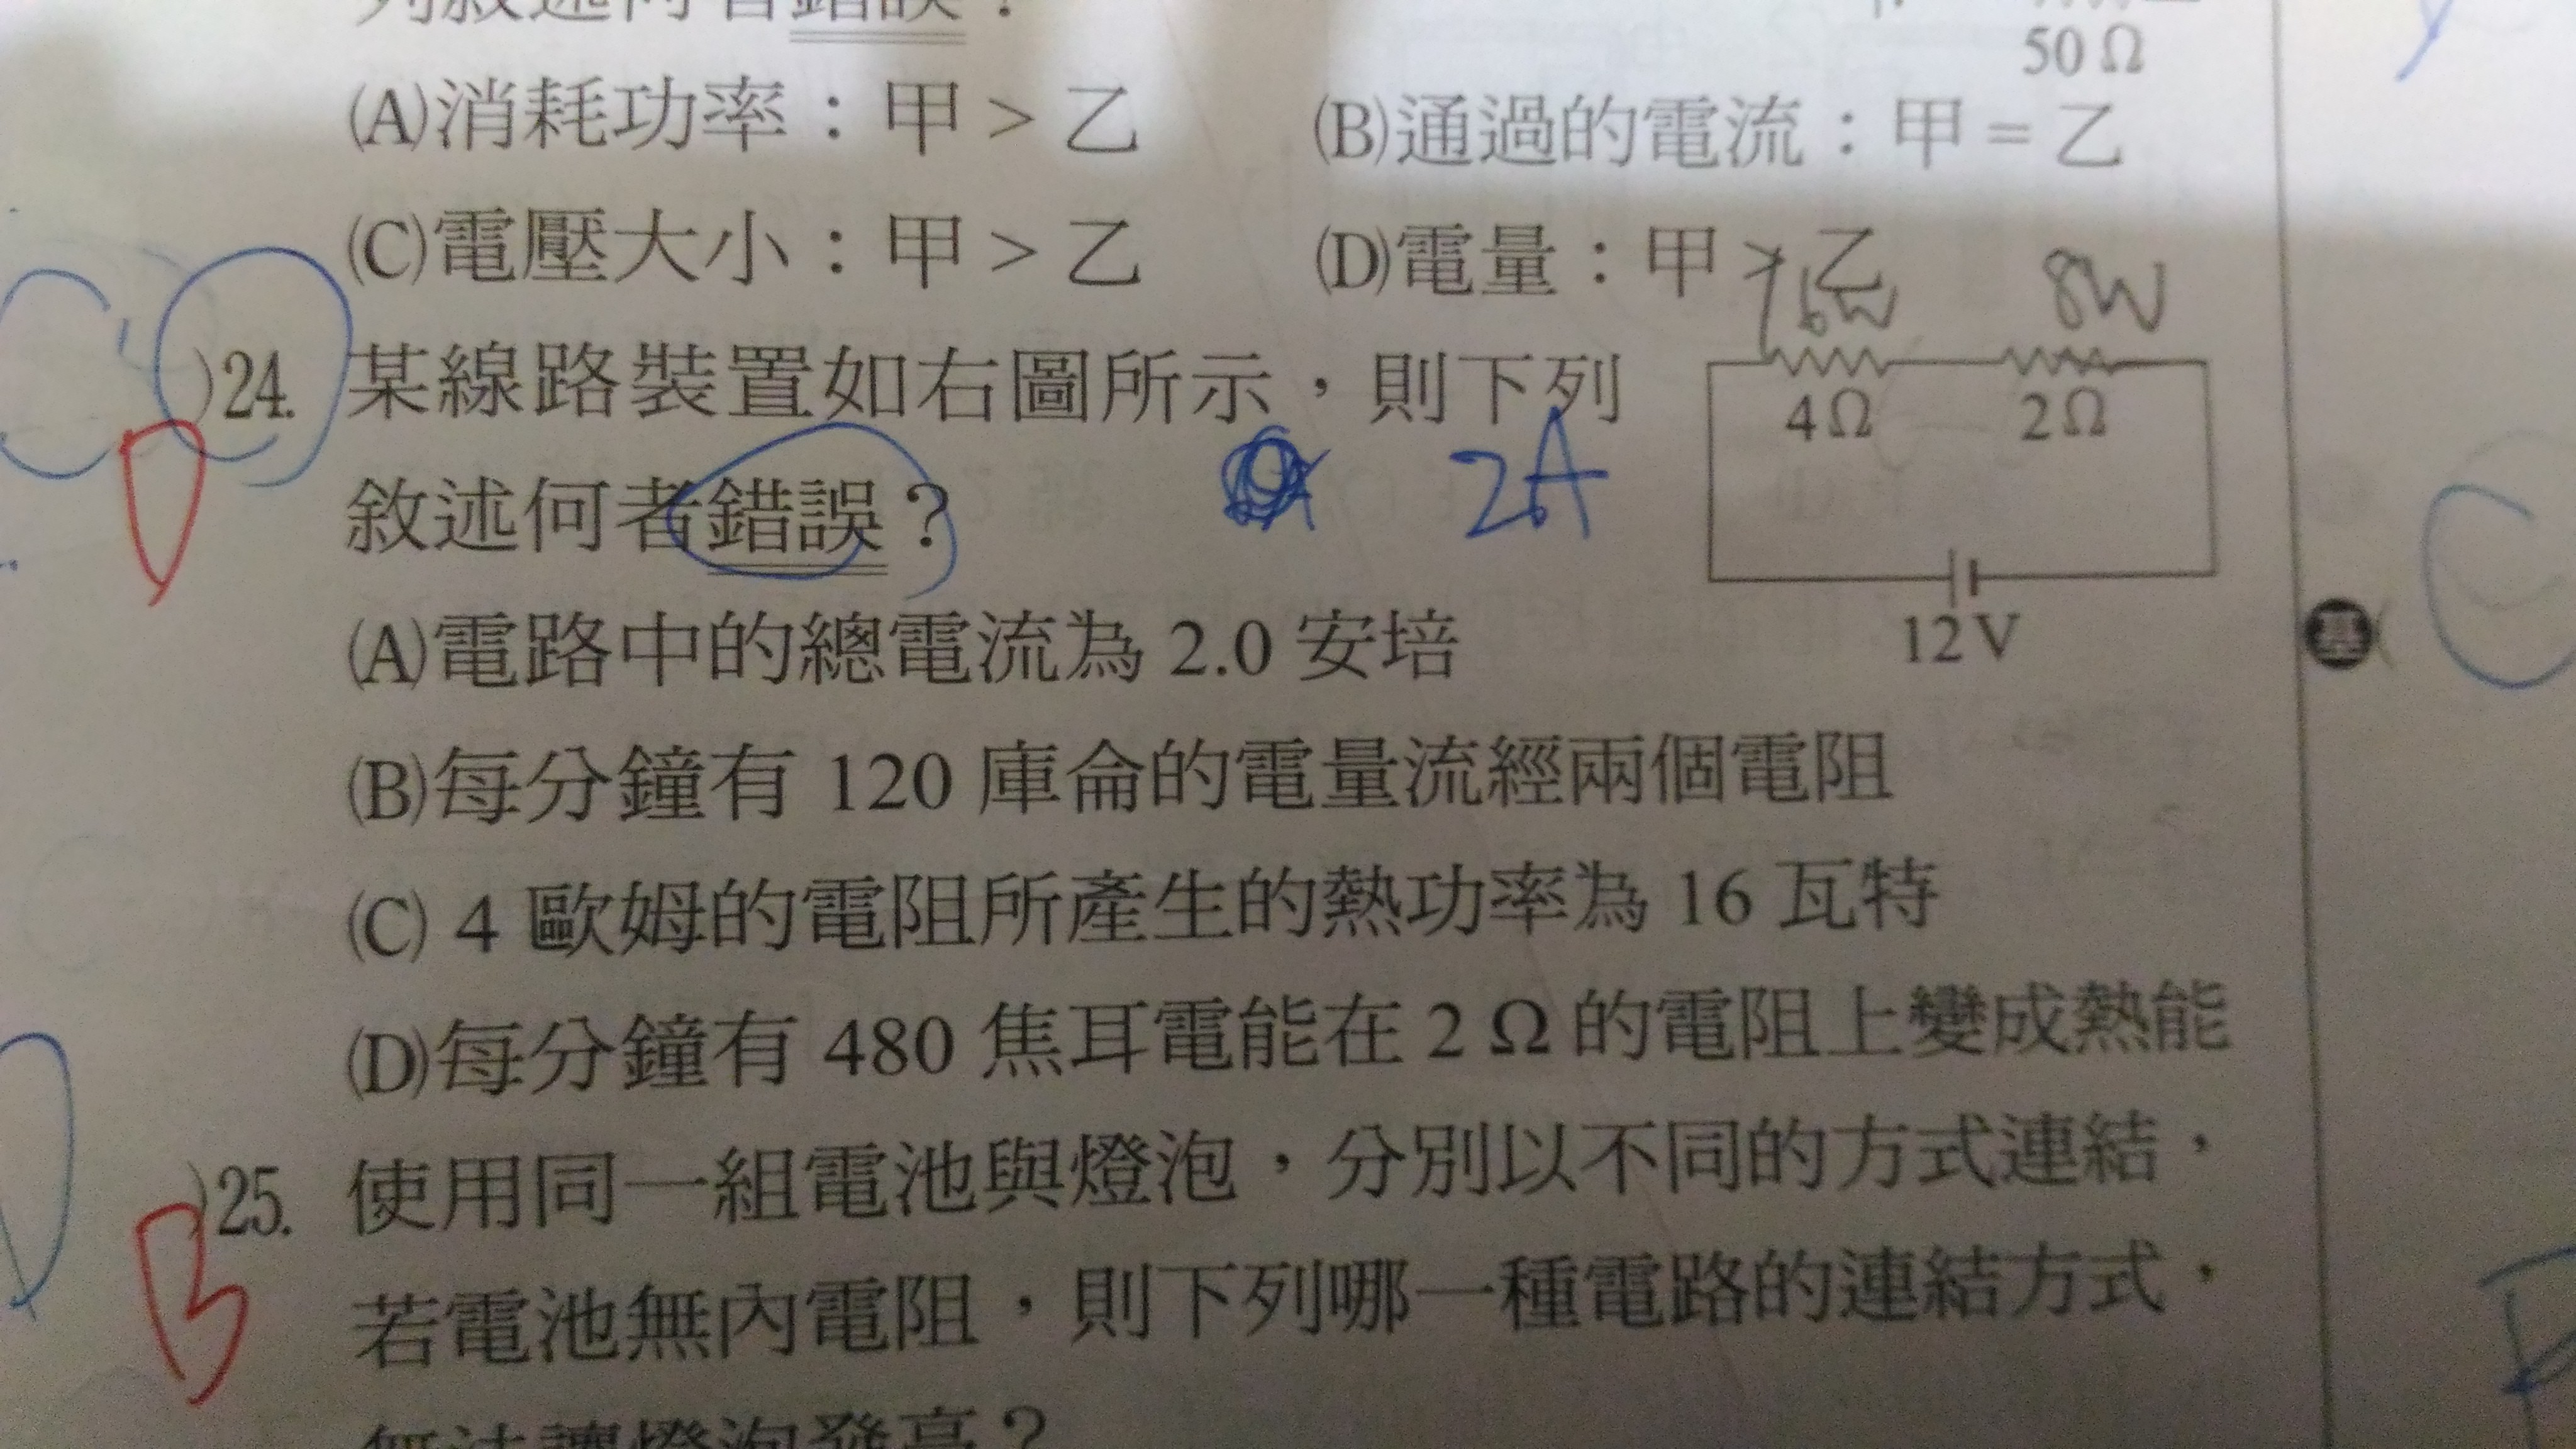 列敘述何者錯誤？
50 Ω
(A)消耗功率：甲 > 乙 (B)通過的電流：甲 = 乙
(C)電壓大小：甲 > 乙 (D)電量：甲 > 乙
16W 8W
)24. 某線路裝置如右圖所示，則下列
4Ω 2Ω
D
敘述何者錯誤？
2A
12V
(A)電路中的總電流為 2.0 安培
基
(B)每分鐘有 120 庫侖的電量流經兩個電阻
(C) 4 歐姆的電阻所產生的熱功率為 16 瓦特
(D)每分鐘有 480 焦耳電能在 2 Ω 的電阻上變成熱能
)25. 使用同一組電池與燈泡，分別以不同的方式連結，
B
若電池無內電阻，則下列哪一種電路的連結方式，
無法讓燈泡發亮？